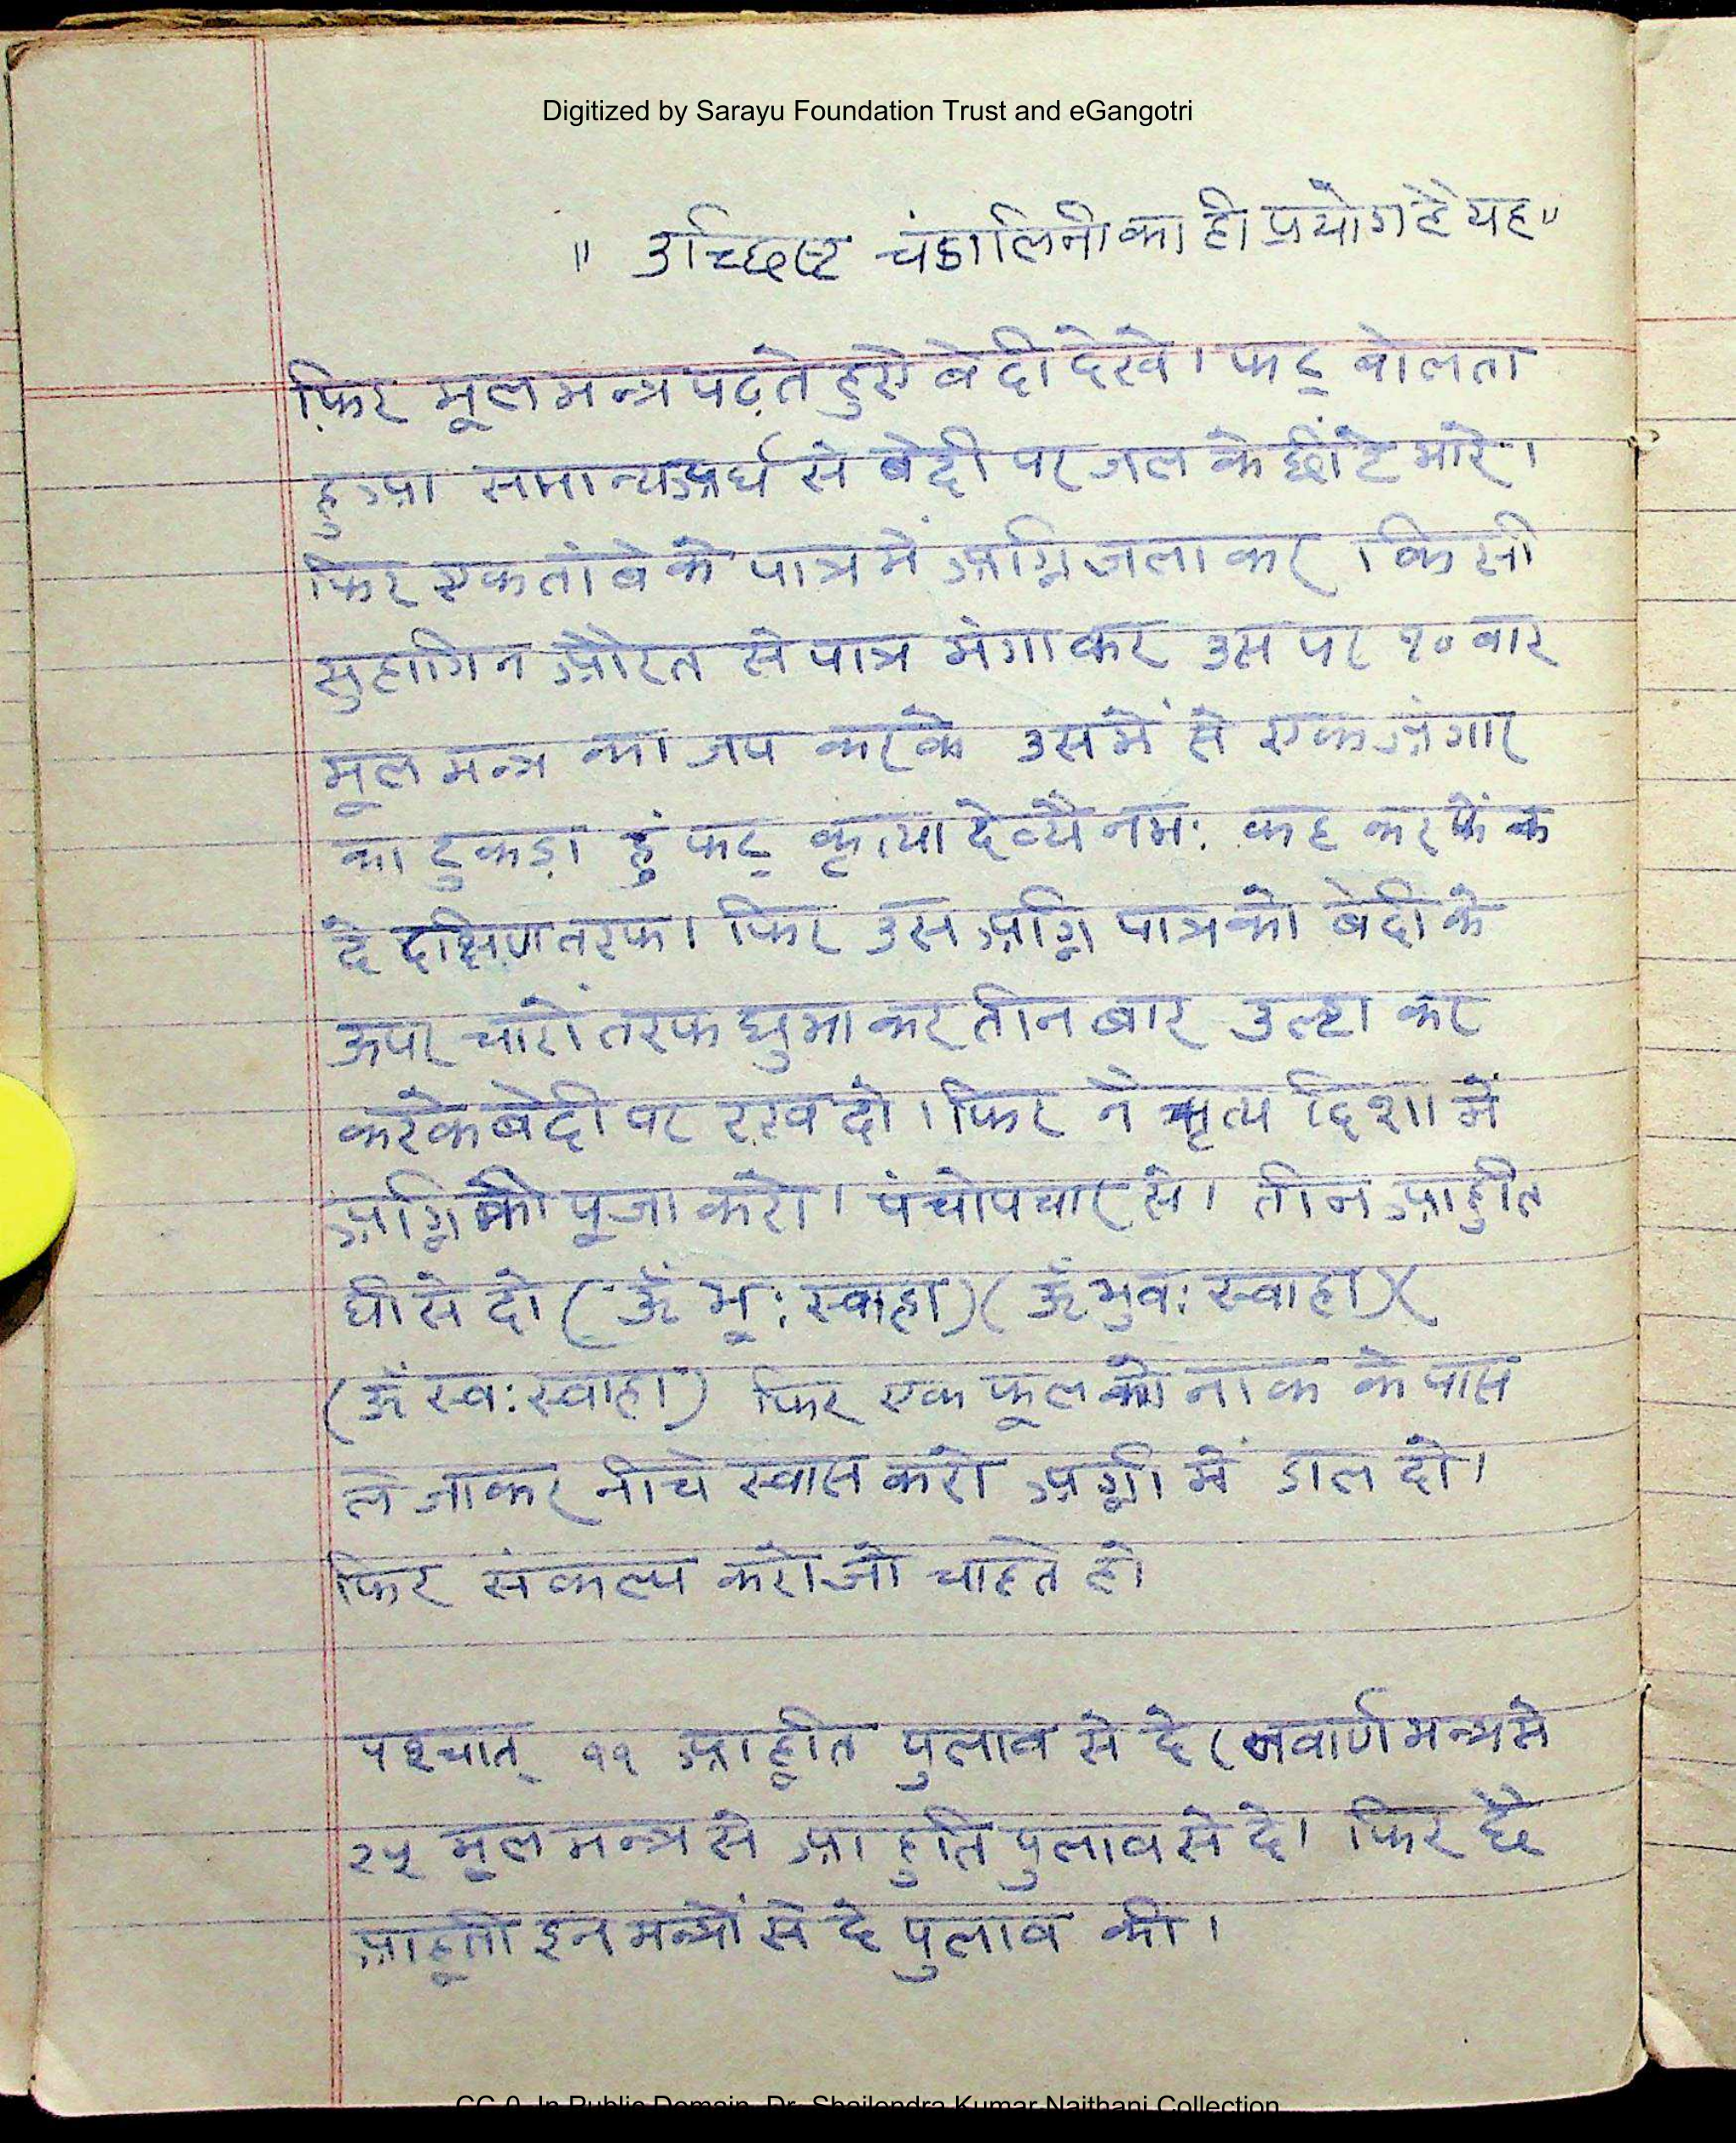 Digitized by Sarayu Foundation Trust and eGangotri
" उच्छिष्ट चंडालिनी का ही प्रयोग है यह"
फ़िर मूल मन्त्र पढ़ते हुऐ बेदी देखे। फट् बोलता
हुआ सामान्य अर्घ से बेदी पर जल के छींटे मारे।
फिर एक तांबे के पात्र में अग्नि जला कर । किसी
सुहागिन औरत से पात्र मंगा कर उस पर १० वार
मूल मन्त्र का जप करके उसमें से एक अंगार
का टुकड़ा हुं फट् कृत्या देव्यै नमः कह कर फेंक
दे दक्षिण तरफ। फिर उस अग्नि पात्र को बेदी के
ऊपर चारों तरफ घुमा कर तीन बार उल्टा कर
करके बेदी पर रख दो। फिर नैऋृत्य दिशा में
अग्नि की पूजा करो। पंचोपचार से। तीन आहुति
घी से दो (ॐ भू: स्वाहा) (ॐ भुव: स्वाहा) (
(ॐ स्व: स्वाहा) फिर एक फूल को नाक के पास
ले जाकर नीचे स्वास करो अग्नी में डाल दो।
फिर संकल्प करो जो चाहते हो
पश्चात् ११ आहूति पुलाव से दे (नवार्ण मन्त्र से
२५ मूल मन्त्र से आहुति पुलाव से दे। फिर छै
आहूती इन मन्त्रों से दे पुलाव की।
CC-0. In Public Domain. Dr. Shailendra Kumar Naithani Collection